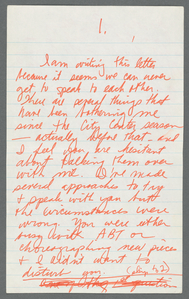 1.
I am writing this letter
because it seems we can never
get to speak to each other.
There are several things that
have been bothering me
since the City Center season
— actually before that, and
I feel you are hesitant
about talking them over
with me. I've made
several approaches to try
& speak with you but the
circumstances were
wrong. You were either
busy with ABT or
choreographing new pieces
& I didn't want to
disturb you.